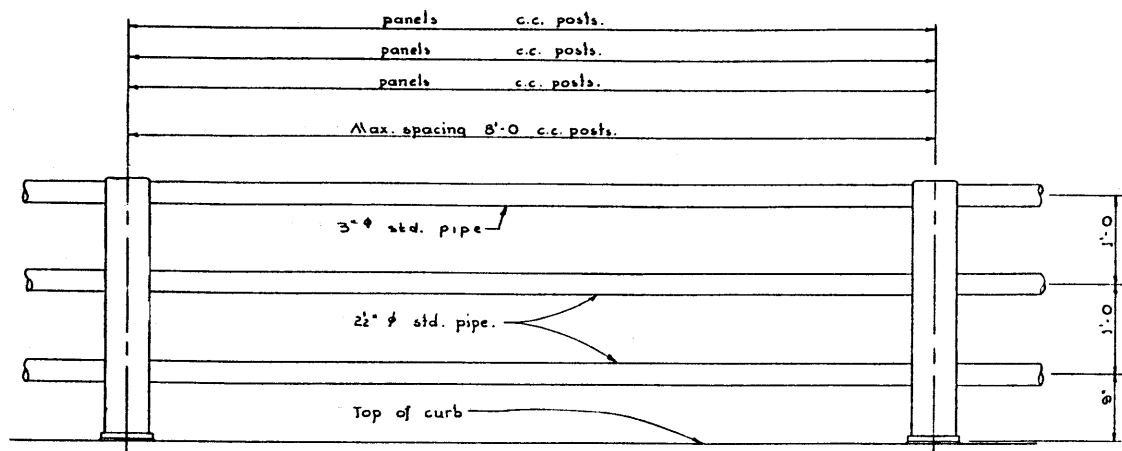 panels c.c. posts.
panels c.c. posts.
panels c.c. posts.
Max. spacing 8'-0 c.c. posts.
3" φ std. pipe
1'-0
2½" φ std. pipe.
1'-0
Top of curb
8"